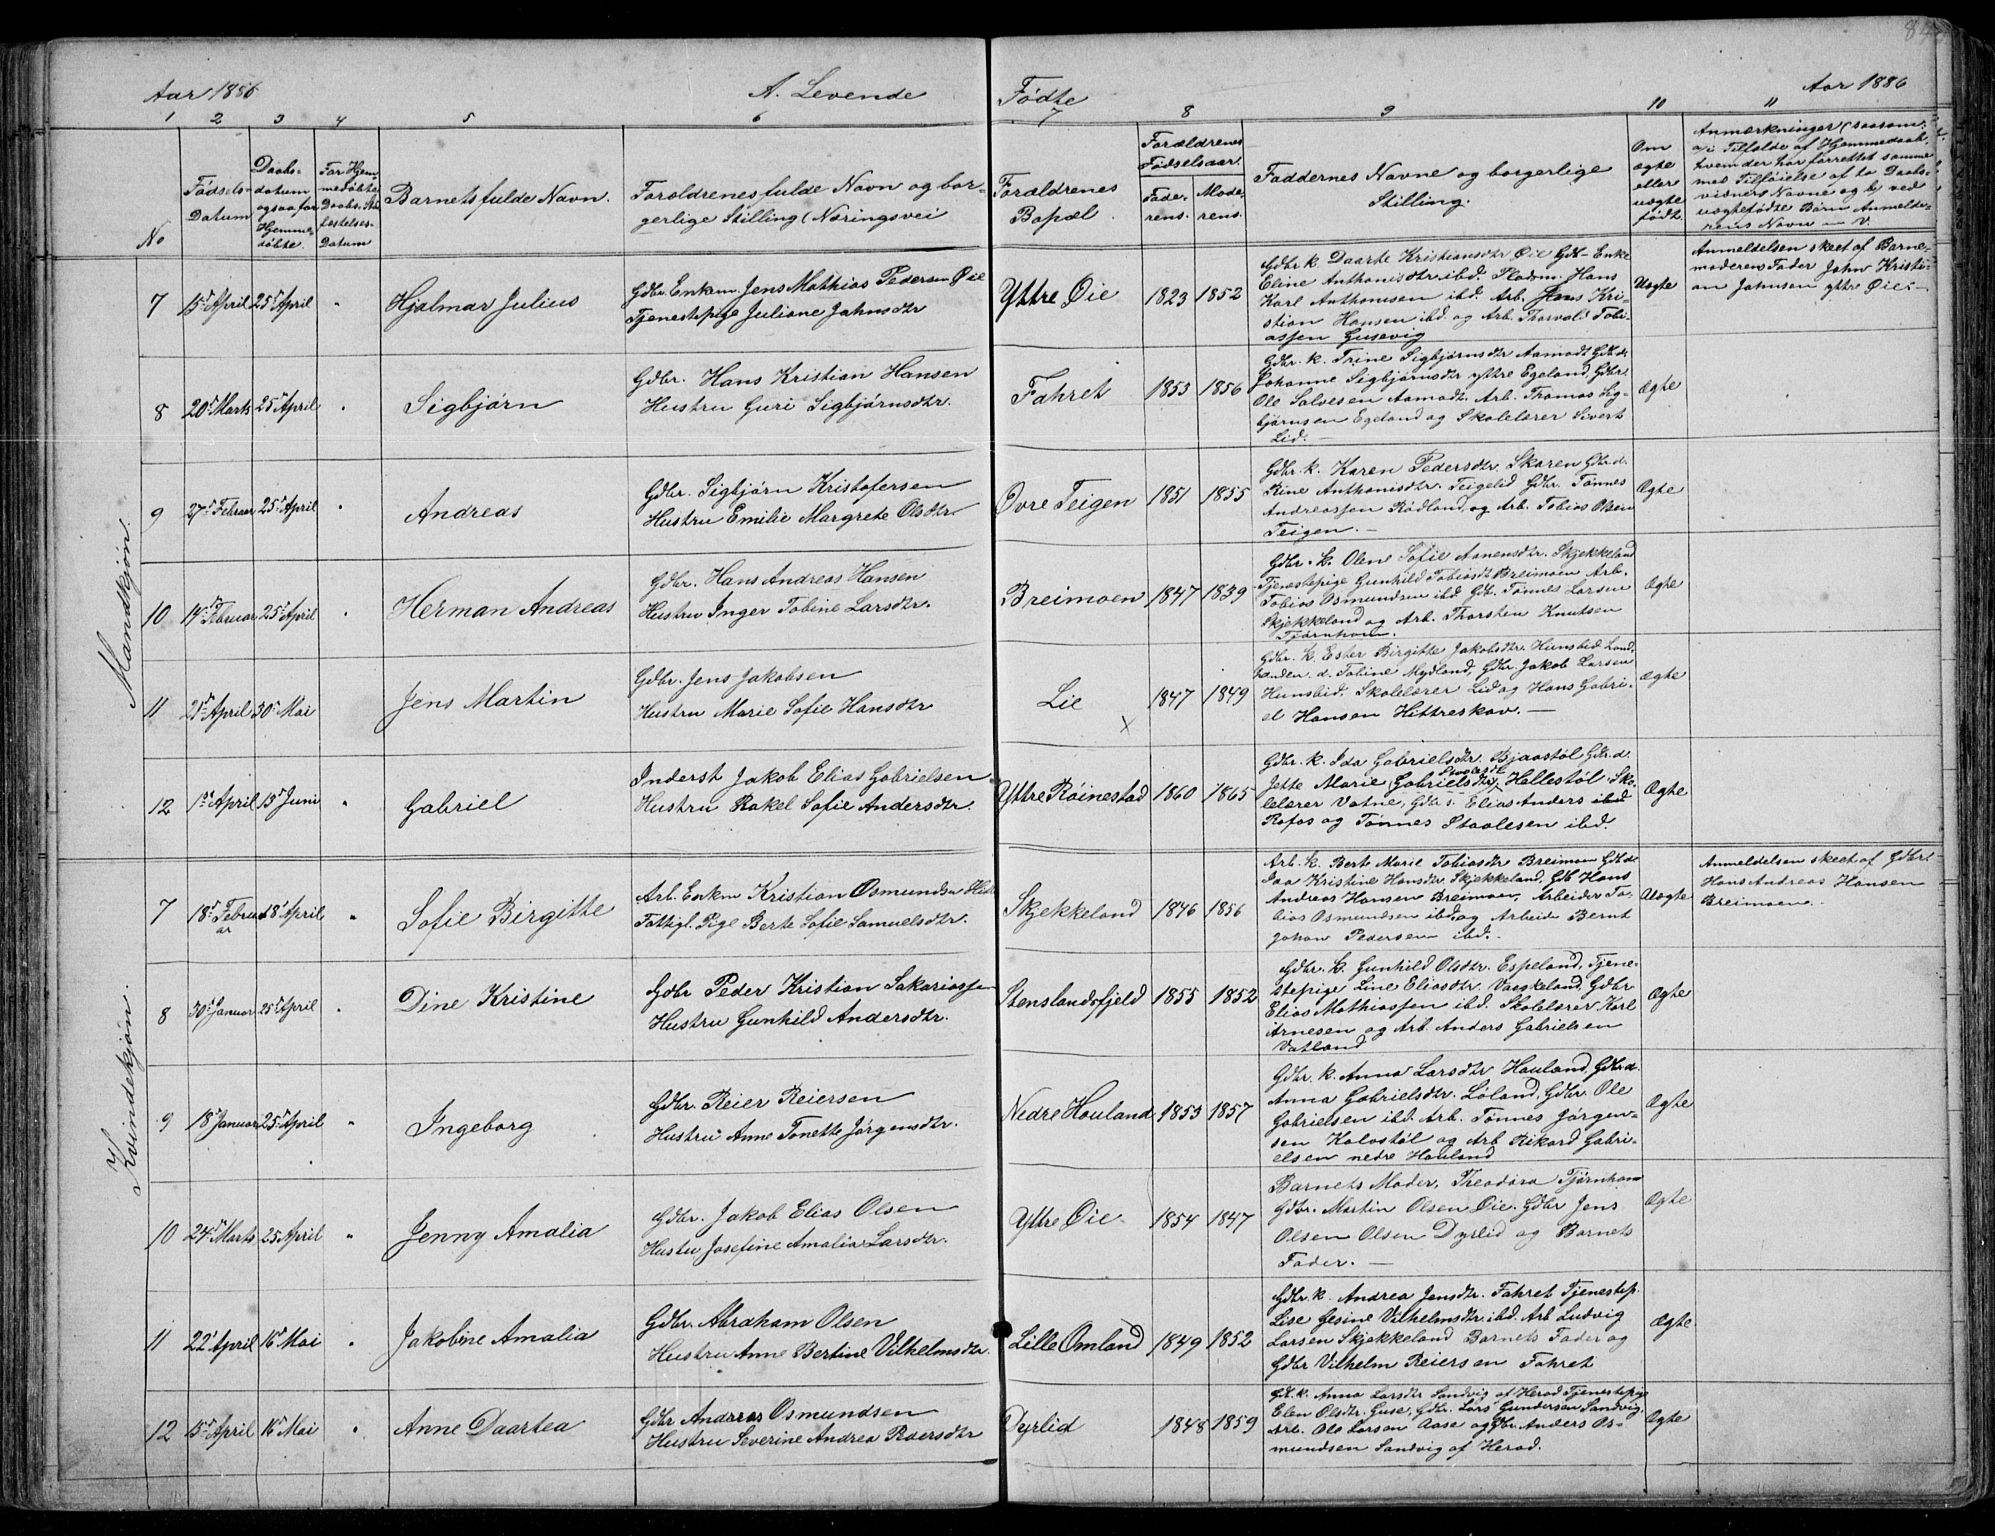 Aar 1886
A. Levende
Fødte
Aar 1886
1 2 3 4 5 6 7 8 9 10 11
No
Fødsels-
Datum
Daabs-
datum
ogsaa for
Hjemme-
døbte.
For Hjem-
medøbte
Daabs. Stad-
fæstelses-
Datum
Barnets fulde Navn.
Forældrenes fulde Navn og bor-
gerlige Stilling (Næringsvei
Forældrenes
Bopæl.
Forældrenes
Fødselsaar.
Fade-
rens.
Mode-
rens.
Faddernes Navne og borgerlige
Stilling.
Om
ægte
eller
uægte
født.
Anmærkninger (saasom:
a) i Tilfælde af Hjemmedaab,
hvem der har forrettet samme
med Tilføielse af to Daabs-
vidners Navne og b) ved
uægtefødte Børn Anmelde-
rens Navn m. V.
Mandkjøn.
7 15de April 25de April " Hjalmar Julius
Gdbr. Enkem. Jens Mathias Pedersen Øie
Tjenestepige Juliane Jahnsdtr
Yttre Øie 1823 1852
Gdbr. k. Daarte Kristiansdtr Øie Gdb- Enke
Eline Anthonisdtr. ibd. Pladsm. Hans
Karl Anthonisen ibd. Arb. Jens Kri-
stian Hansen ibd. og Arb. Thorvald Tobi-
assen Gusevig
Uægte
Anmeldelsen skeet af Barne-
moderens Fader John Kristi-
an Johnsen yttre Øie.-
8 20de Marts 25de April " Sigbjørn
Gdbr. Hans Kristian Hansen
Hustru Guri Sigbjørnsdtr.
Fahret 1853 1856
Gdbr. k. Trine Sigbjørnsdtr Aamodt Gdb.dr
Johanne Sigbjørnsdtr yttre Egeland, Gdbr.
Ole Salvesen Aamodt. Arb. Thomas Sig-
bjørnsen Egeland og Skolelærer Sivert
Lid. -
Ægte
9 27de Februar 25de April " Andreas
Gdbr. Sigbjørn Kristofersen
Hustru Emilie Margrete Olsdtr.
Øvre Teigen 1851 1855
Gdbr. k. Karen Pedersdtr. Skaren Gdbr.d.
Rine Anthonisdtr. Teigelid Gdbr. Tønnes
Andreassen Rødland og Arb. Tobias Olsen
Teigen. -
Ægte
10 14de Februar 25de April " Herman Andreas
Gdbr. Hans Andreas Hansen
Hustru Inger Tobine Larsdtr.
Breimoen 1847 1839
Gdbr. k. Olene Sofie Aanensdtr. Skjekkeland
Tjenestepige Gunhild Tobiasdtr Breimoen Arb.
Tobias Osmundsen ibd. Gdb. Tønnes Larsen
Skjekkeland og Arb. Thorsten Knutsen
Tjørnhom.
Ægte
11 21de April 30de Mai Jens Martin
Gdbr. Jens Jakobsen
Hustru Marie Sofie Hansdtr
Lie 1847 1849
x
Gdbr. k. Ester Birgitte Jakobsdtr. Hunsbid Land-
handler. d. Tobine Mydland, Gdbr. Jakob Larsen
Hunsbid. Skolelærer Lid og Hans Gabri-
el Hanson Hittreskov. -
Ægte
12 1de April 15de Juni " Gabriel
Inderst Jakob Elias Gabrielsen
Hustru Rakel Sofie Andersdtr.
Yttre Røinestad 1860 1865
Gdbr. k. Ida Gabrielsdtr. Bjaastøl Gdbr.d.
Jette Marie Gabrielsdtr Hallestøl Sko-
lelærer Vatne, Gdbr.s. Elias Anders ibd
Rafos og Tønnes Staalesen ibd.
Ægte
Kvindekjøn.
7 18de Febru-
ar
18de April " Sofie Birgitte
Arb. Enkm Kristian Osmundsen
Fattigl. Pige Berte Sofie Samuelsdtr.
Skjekkeland 1846 1856
Arb. k. Berte Marie Tobiasdtr Breimoen Gdb.dr
Ida Kristine Hansdtr Skjekkeland, Gdb Hans
Andreas Hansen Breimoen, Arbeider To-
bias Osmundsen ibd og Arbeide Bernt
Johan Pedersen ibd.
Uægte
Anmeldelsen skeet af Gdbr.
Hans Andreas Hansen
Breimoen.
8 30de Januar 25de April " Dine Kristine
Gdbr Peder Kristian Sakariassen
Hustru Gunhild Andersdtr.
Stenslandsfjeld 1855 1852
Gdbr. k. Gunhild Olsdtr. Espeland, Tjene-
stepige Line Eliasdtr. Vaegkeland, Gdbr
Elias Mathiassen ibd. Skolelærer Karl
Arnesen og Arb. Anders Gabrielsen
Vatland
Ægte
9 18de Januar 25de April " Ingeborg
Gdbr. Reier Reiersen
Hustru Anne Tonette Jørgensdtr.
Nedre Houland 1853 1857
Gdbr. k. Anna Larsdtr Houland, Gdbr.d.
Anna Gabrielsdtr. Løland, Gdbr. Ole
Gabrielsen ibd. Arb. Tønnes Jørgen-
sen Kalvstøl og Arb Rikard Gabri-
elsen nedre Houland
Ægte
10 24de Marts 25 April " Jenny Amalia
Gdbr. Jakob Elias Olsen
Hustru Josefine Amalia Larsdtr.
Yttre Øie 1854 1847
Barnets Moder, Theodora Tjørnhom
Gdbr. Martin Olsen Øie. Gdbr Jens
Olsen Olsen Dyrlid og Barnets
Fader. -
Ægte
11 22de April 16de Mai " Jakobine Amalia
Gdbr. Abraham Olsen
Hustru Anne Bertine Vilhelmsdtr.
Lille Omland 1849 1852
Gdbr. k. Andrea Jensdtr. Fahret Tjenestep.
Lise Gesine Vilhelmsdtr. ibd. Arb Ludvig
Larsen Skjekkeland Barnets Fader og
Gdbr Vilhelm Reiersen Fahret
Ægte
12 15de April 16de Mai " Anne Daartea
Gdbr Andreas Osmundsen
Hustru Severine Andrea Roersdtr
Dyrlid 1848 1859
Gdb. k. Anna Larsdtr Sandvig af Herad Tjenestepige
Elen Olsdtr. Guse, Gdbr. Lars Gundersen Sandvig.
Arb. Ole Larsen Aase og Gdbr. Anders Os-
mundsen Sandvig af Herad.
Ægte